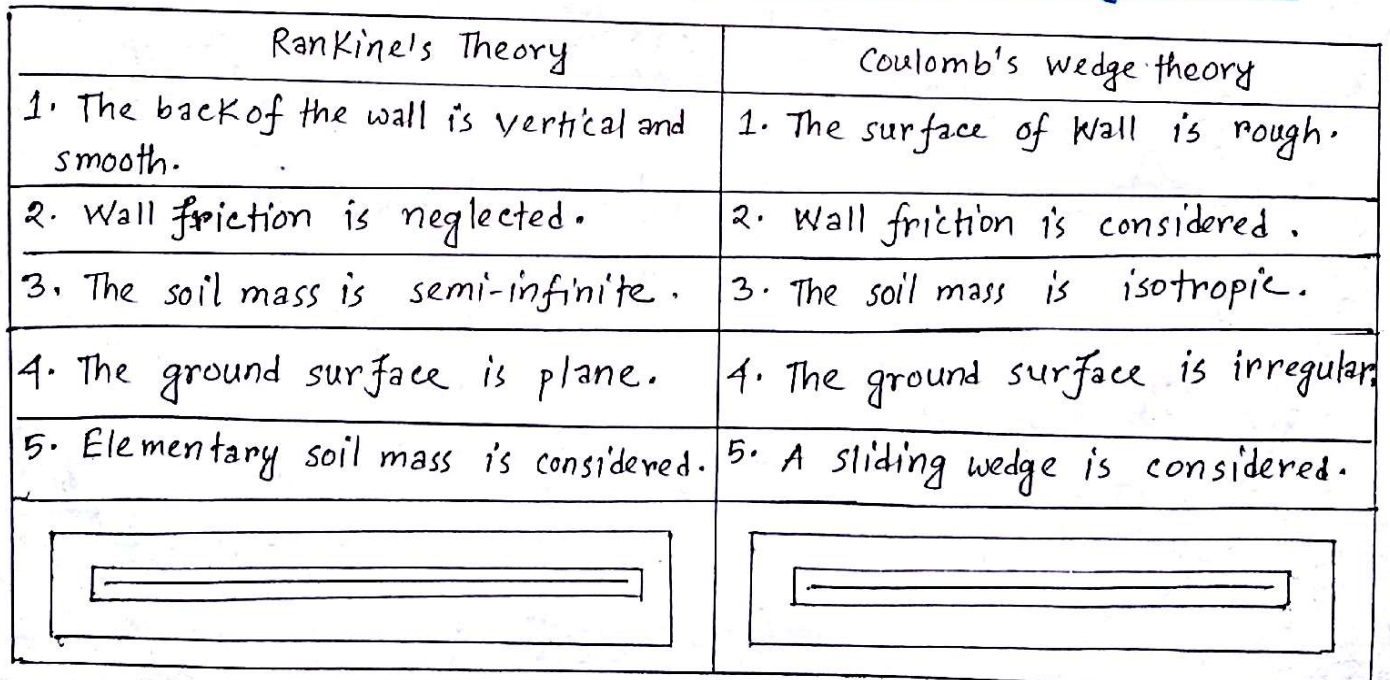 Rankine's Theory
Coulomb's wedge theory
1. The back of the wall is vertical and
smooth.
1. The surface of Wall is rough.
2. Wall friction is neglected.
2. Wall friction is considered.
3. The soil mass is semi-infinite.
3. The soil mass is isotropic.
4. The ground surface is plane.
4. The ground surface is irregular.
5. Elementary soil mass is considered.
5. A sliding wedge is considered.